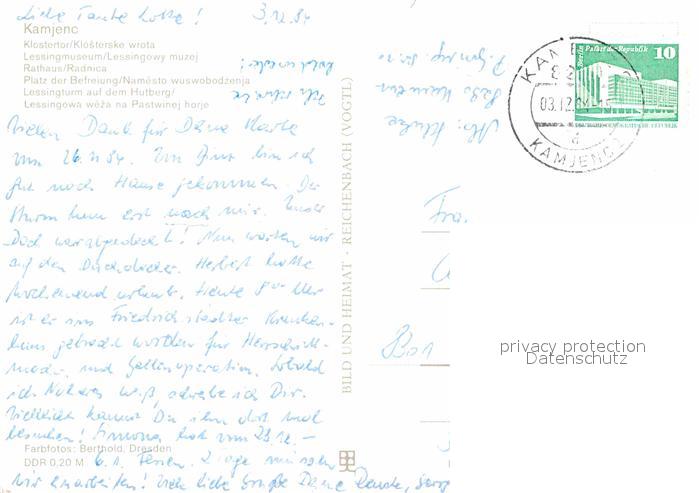 Liebe Tante Lotte! 3.12.84
Kamjenc
Klostertor/Klóšterske wrota
Lessingmuseum/Lessingowy muzej
Rathaus/Radnica
Platz der Befreiung/Naměsto wuswobodzenja
Lessingturm auf dem Hutberg/
Lessingowa wěža na Pastwinej horje
Ich schreibe
bald wieder!
Vielen Dank für Deine Karte
vom 26.11.84. Im Zug bin ich
gut nach Hause gekommen. Der
Sturm kam erst nach mir. Unser
Dach war abgedeckt! Nun warten wir
auf den Dachdecker. Herbert hatte
Wochenend urlaub. Heute 8 00 Uhr
ist er ins Friedrichstädter Kranken-
haus gebracht worden für Herzschritt-
macher und Gallenoperation. Sobald
ich Näheres weiß, schreibe ich Dir.
Vielleicht kannst Du ihn dort mal
besuchen! Simone hat vom 23.12. –
Farbfotos: Berthold, Dresden
DDR 0,20 M 6.1. Ferien. 2 Tage müssen
wir einarbeiten! Viele liebe Grüße Deine
BILD UND HEIMAT · REICHENBACH (VOGTL)
Kamenz
Berlin Palast der Republik 10
DEUTSCHE DEMOKRATISCHE REPUBLIK
KAMENZ
03.12.84
KAMJENC
Fra.
privacy protection
Datenschutz